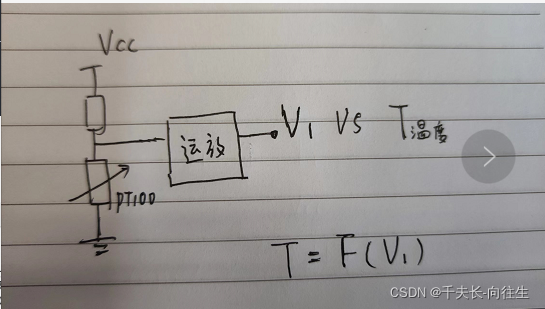 Vcc
运放
V1 VS T温度
PT100
T = F(V1)
CSDN @千夫长-向往生